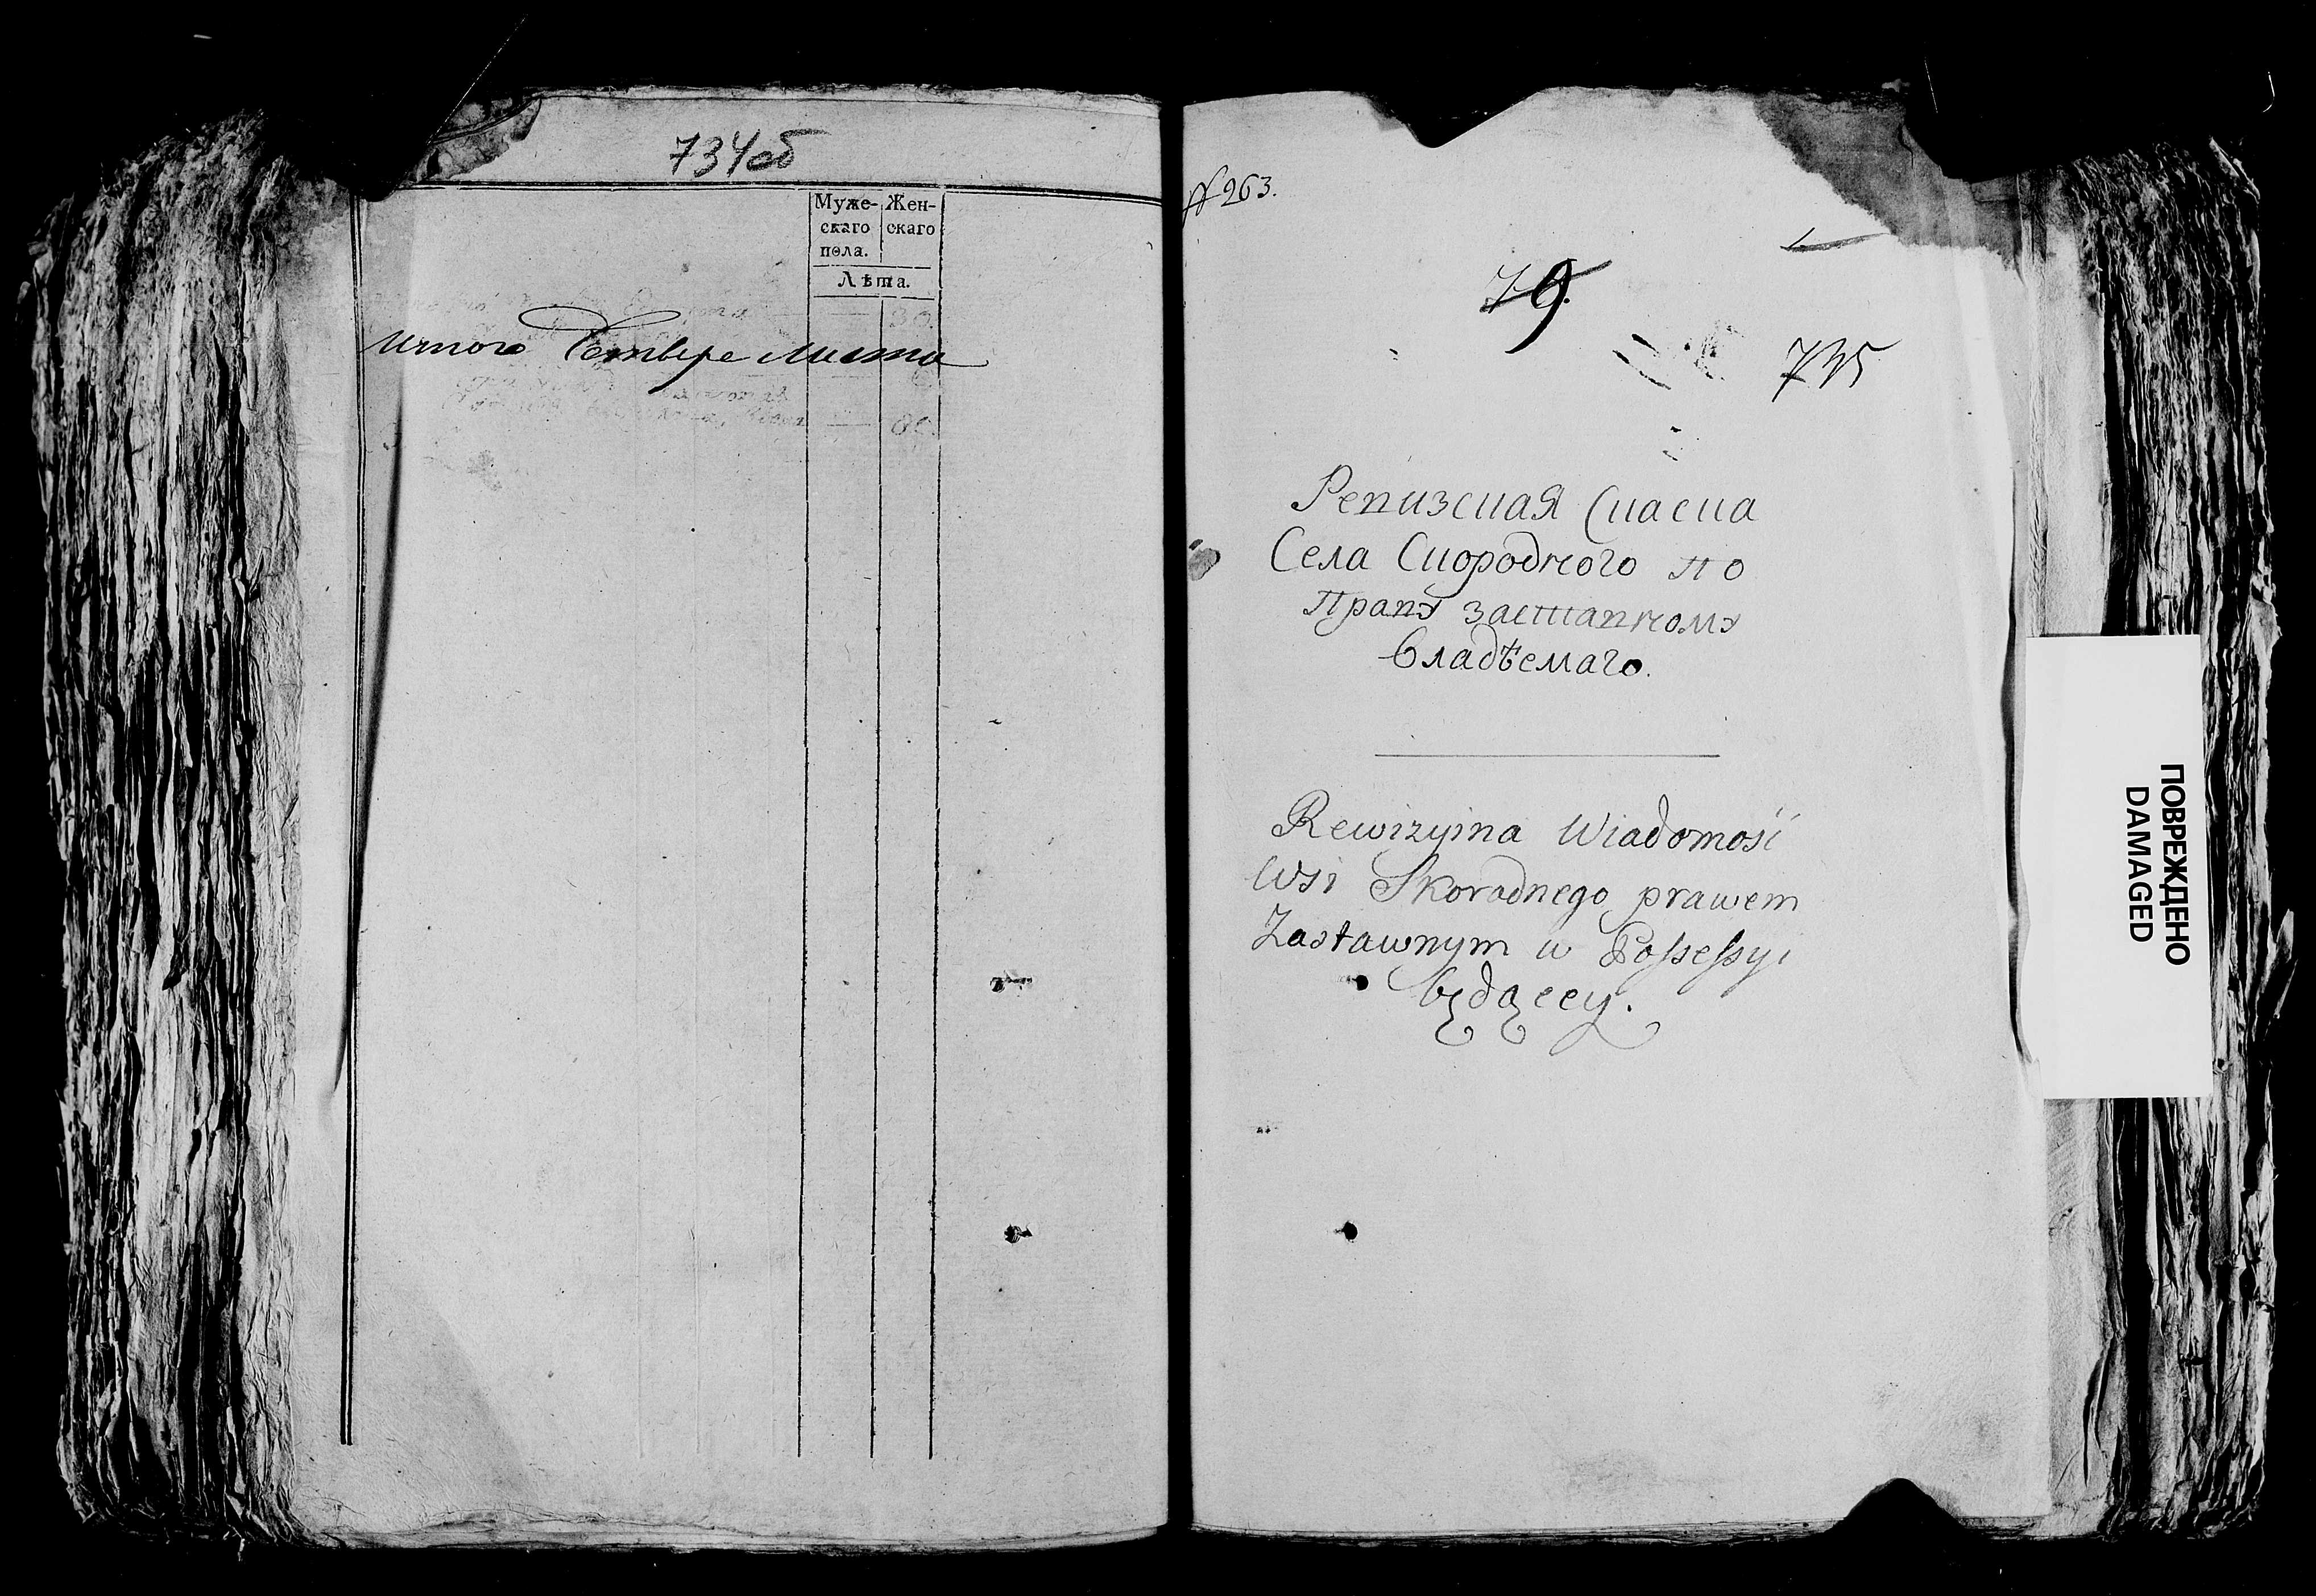 734об
Муже- Жен-
скаго скаго
пола.
Лѣта.
30.
итого Четвере листа
№ 263.
79.
735
Ревизская Скаска
Села Скородного по
Правȣ заставномȣ
Владѣемаго.
Rewizyina Wiadomość
Wsi Skorodnego prawem
Zastawnym w Possessyi
będącey.
ПОВРЕЖДЕНО
DAMAGED